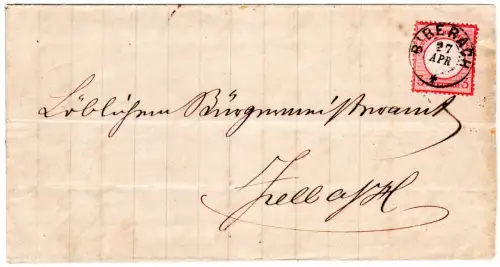 BIBERACH
27
APR
Löblichem Bürgermeisteramt
Zell a/H